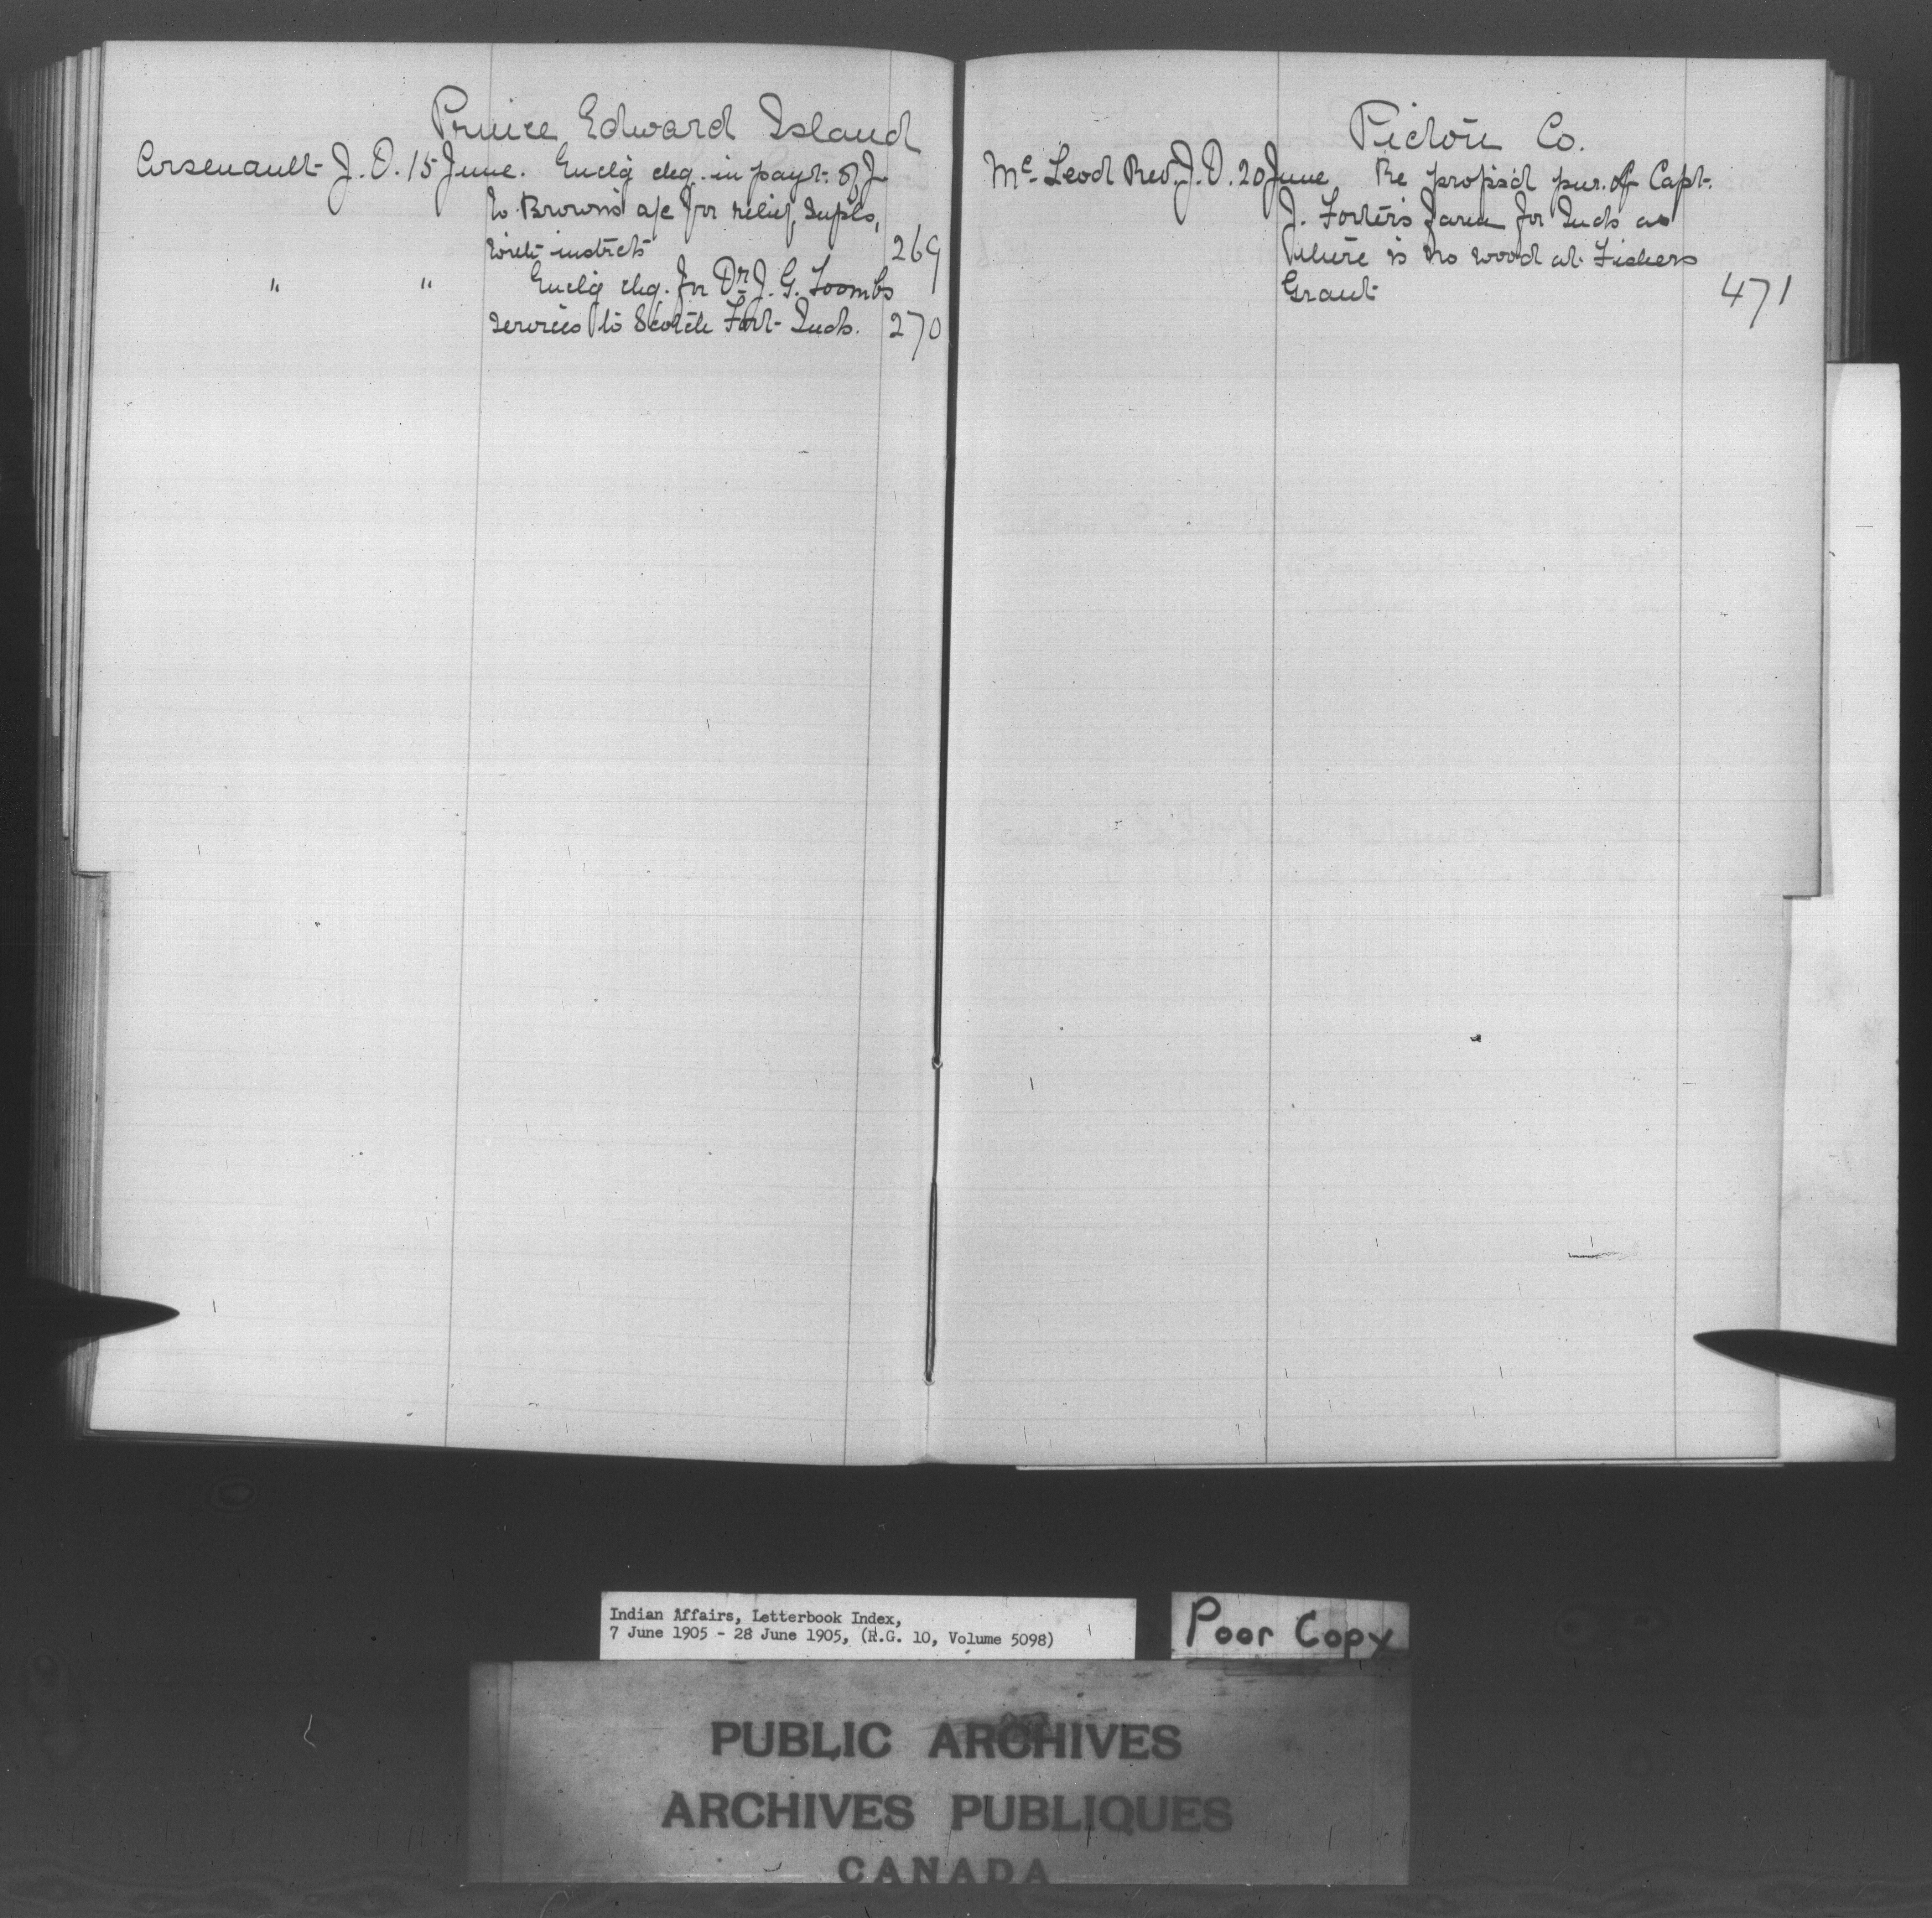 Prince Edward Island
Arsenault J. O. 15 June. Enclg chq. in payt. of J.
W. Brown's a/c for relief supls,
with instrcts 269
" " Enclg chq. for Dr J. G. Toombs
services to Scotch Fort Inds. 270
Pictou Co.
Mc Leod Rev. J. D. 20 June Re propsd pur. of Capt.
J. Foster's farm for Inds as
there is no wood at Fishers
Grant 471
Indian Affairs, Letterbook Index,
7 June 1905 - 28 June 1905, (R.G. 10, Volume 5098)
Poor Copy
PUBLIC ARCHIVES
ARCHIVES PUBLIQUES
CANADA